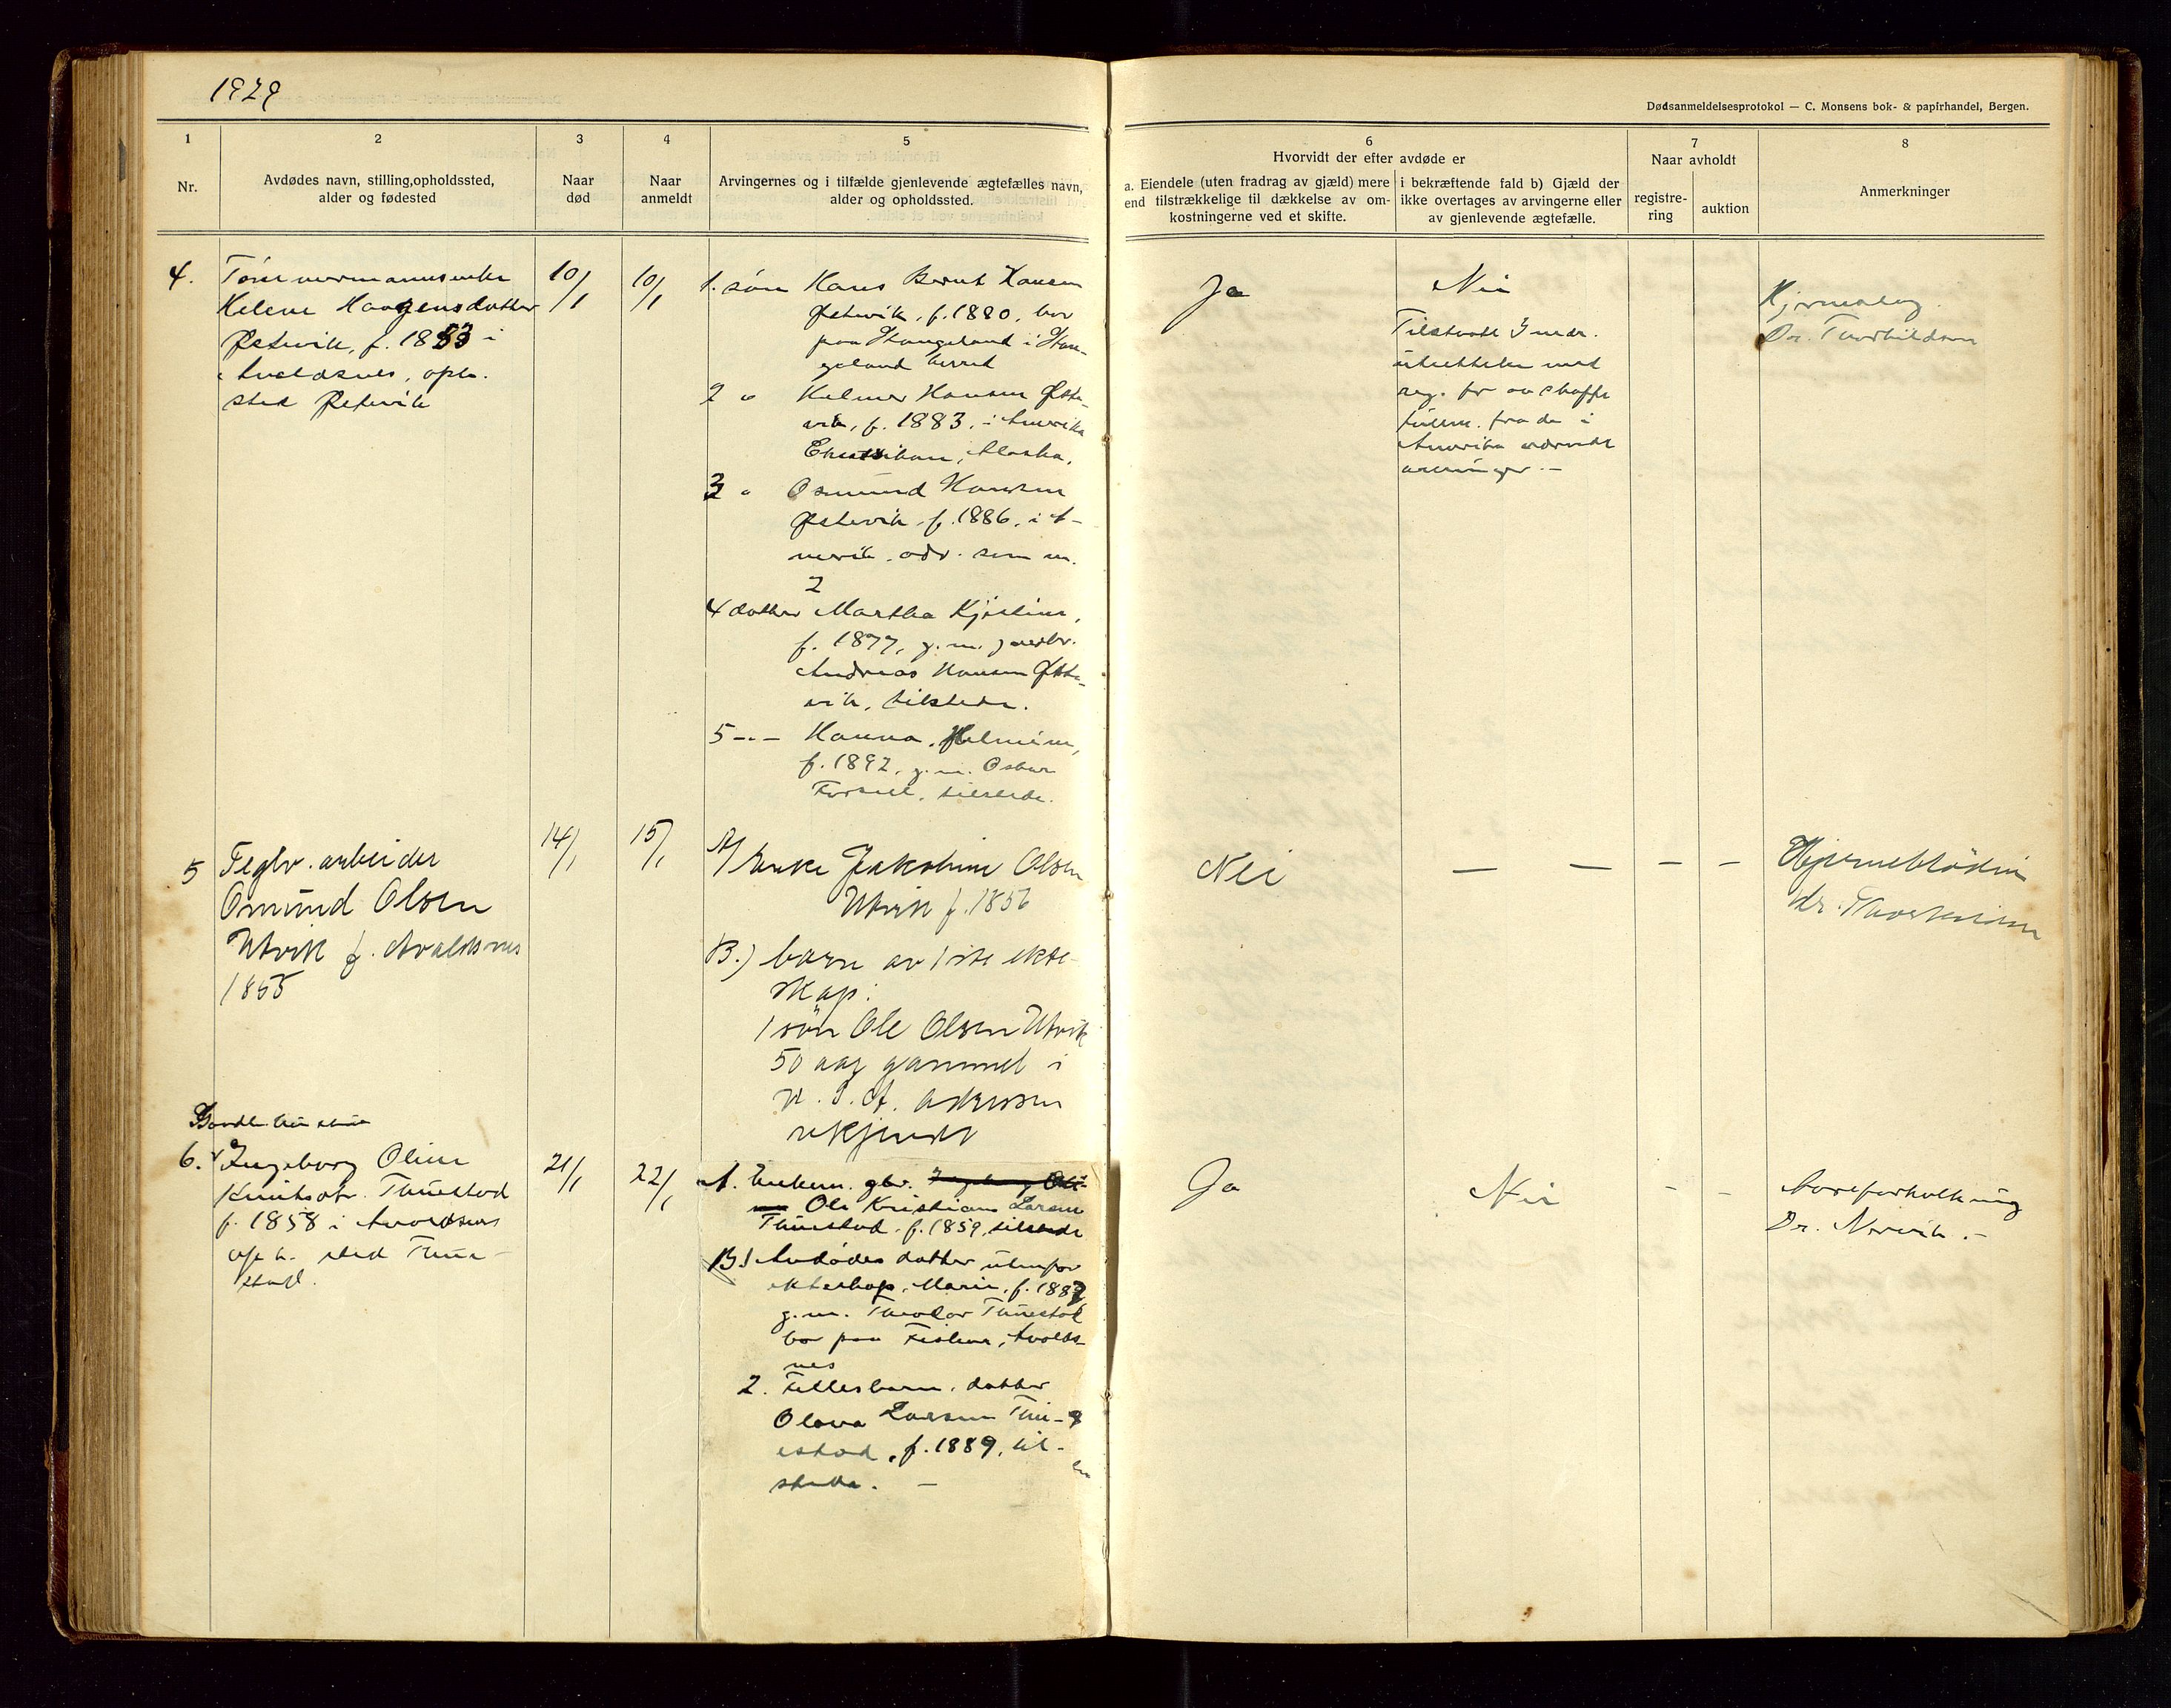 1929
Dødsanmeldelsesprotokol — C. Monsens bok- & papirhandel, Bergen.
1
2
3
4
5
6
7
8
Nr.
Avdødes navn, stilling, opholdssted,
alder og fødested
Naar
død
Naar
anmeldt
Arvingernes og i tilfælde gjenlevende ægtefælles navn,
alder og opholdssted.
Hvorvidt der efter avdøde er
a. Eiendele (uten fradrag av gjæld) mere
end tilstrækkelige til dækkelse av om-
kostningerne ved et skifte.
i bekræftende fald b) Gjæld der
ikke overtages av arvingerne eller
av gjenlevende ægtefælle.
Naar avholdt
registre-
ring
auktion
Anmerkninger
4.
Tømmermannsenke
Helene Haagensdatter
Østevik, f. 1853 i
Avaldsnes, oph.
sted Østevik
10/1
10/1
1. søn Hans Bernt Hansen
Østevik, f. 1880, bor
paa Stangeland i Stan-
geland herred
2 " Helmer Hansen Øste-
vik, f. 1883, i Amerika
Alaska.
3 " Osmund Hansen
Østevik f. 1886, i A-
merik. adr. som nr.
2
4 datter Martha Kjistine,
f. 1877, g. m. gaardbr.
Andreas Hansen Øste-
vik, tilstede.
5 -"- Hanna Helmine,
f. 1892, g. m. Oskar
tilstede.
Ja
Nei
Tilstaatt 3 mdr.
utsettelse med
reg. for aa skaffe
fullm. fra de i
Amerika værende
arvinger. —
Dr. Thorkildsen
5
Teglv. arbeider
Osmund Olsen
Utvik f. Avaldsnes
1855
14/1
15/1
A/ Enke Jakobine Olsen
Utvik f. 1856
B.) barn av 1ste ekte-
skap:
1 søn Ole Olsen Utvik
50 aar gammel i
U. S. A. adressen
ukjendt
Nei
— — — —
Hjerneblødin
dr. Thorkildsen
6.
Ingeborg Oline
Knutsdtr. Thuestad
f. 1858 i Avaldsnes
oph. sted Thue-
stad.
21/1
22/1
A. Enkem. gbr.
Ole Kristian Larsen
Thuestad, f. 1859, tilstede
B.) Avdødes datter utenfor
ekteskap, Marie, f. 1882
g. m. Theodor Thuestad
bor paa Avalds-
nes
2. Fellesbarn, datter
Olava Larsen Thu-
estad, f. 1889, til-
stede. —
Ja
Nei
- -
Aareforkalkning
Dr. Norvik. -